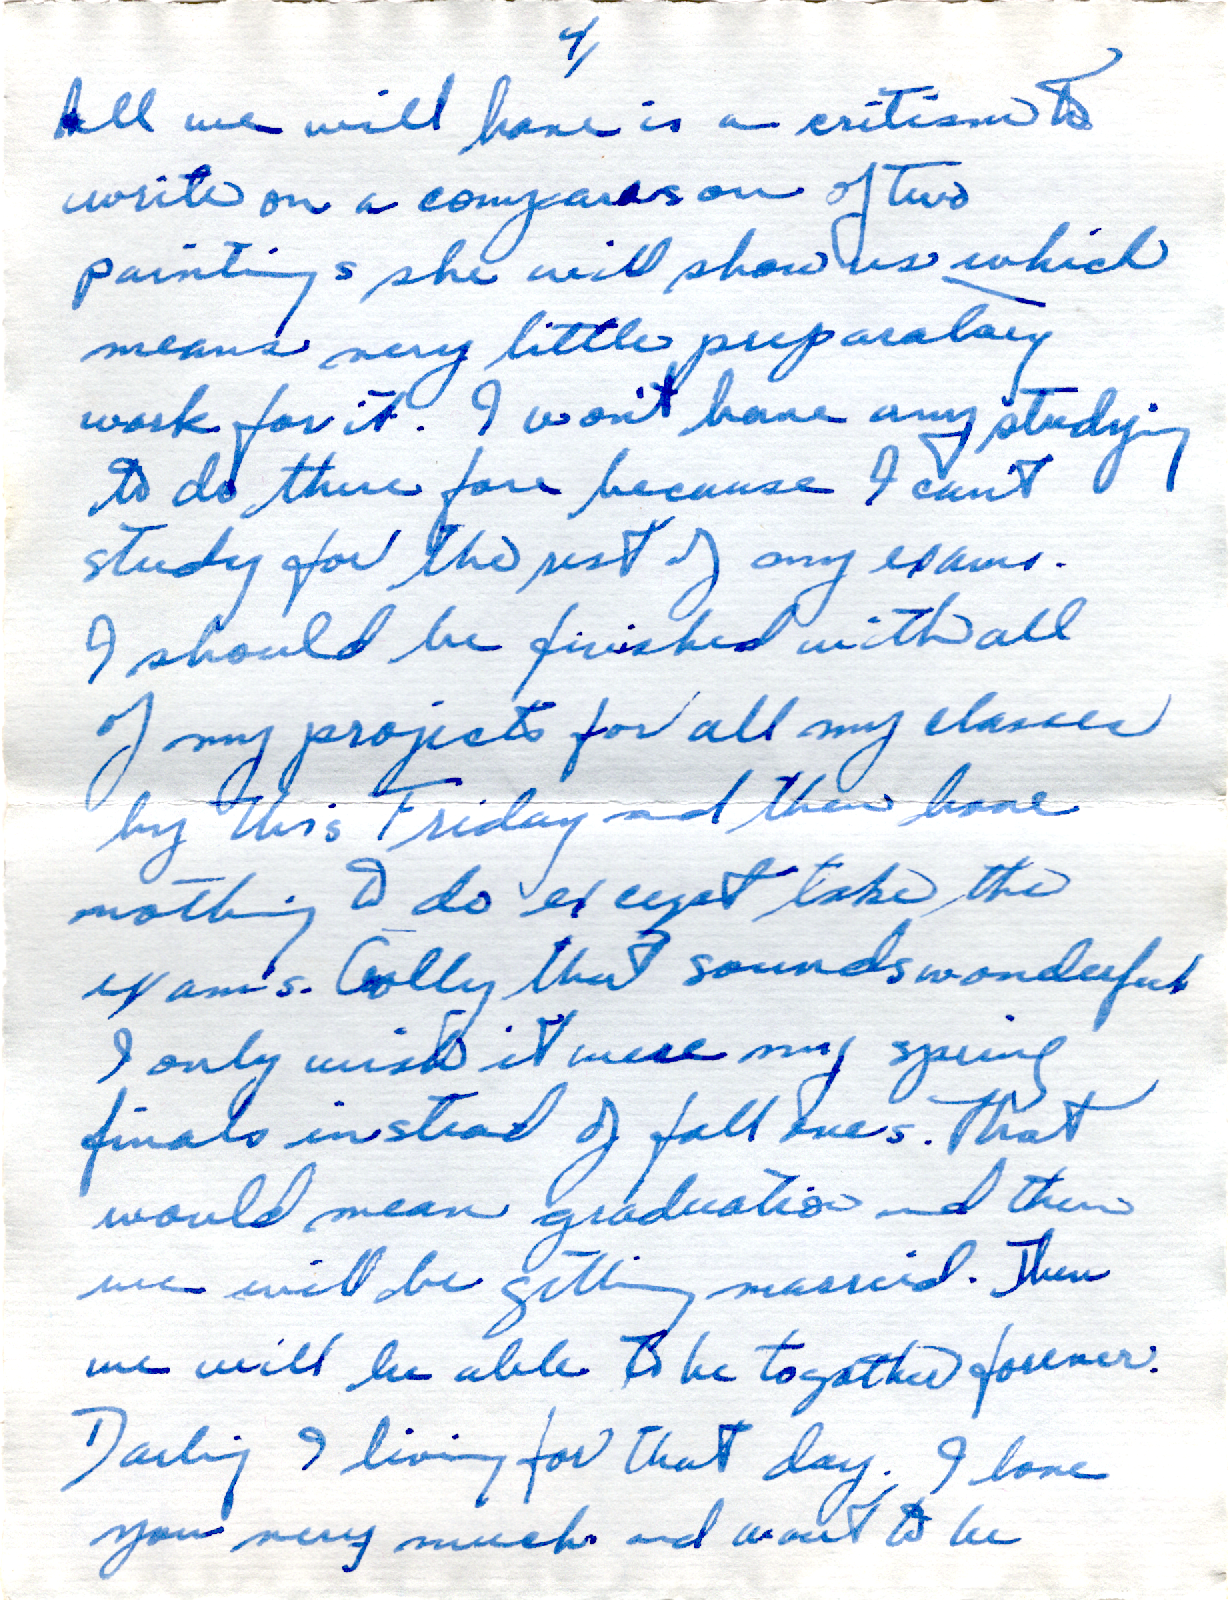 4/
All we will have is a critism to
write on a comparason of two
paintings she will show us which
means very little preparatory
work for it. I won't have any studying
to do there fore because I can't
study for the rest of my exams.
I should be finished with all
of my projects for all my classes
by this Friday and then have
nothing to do except take the
exams. Golly that sounds wonderful
I only wish it were my spring
finals instead of fall ones. That
would mean graduation and then
we will be getting married. Then
we will be able to be together forever.
Darling I living for that day. I love
you very much and want to be